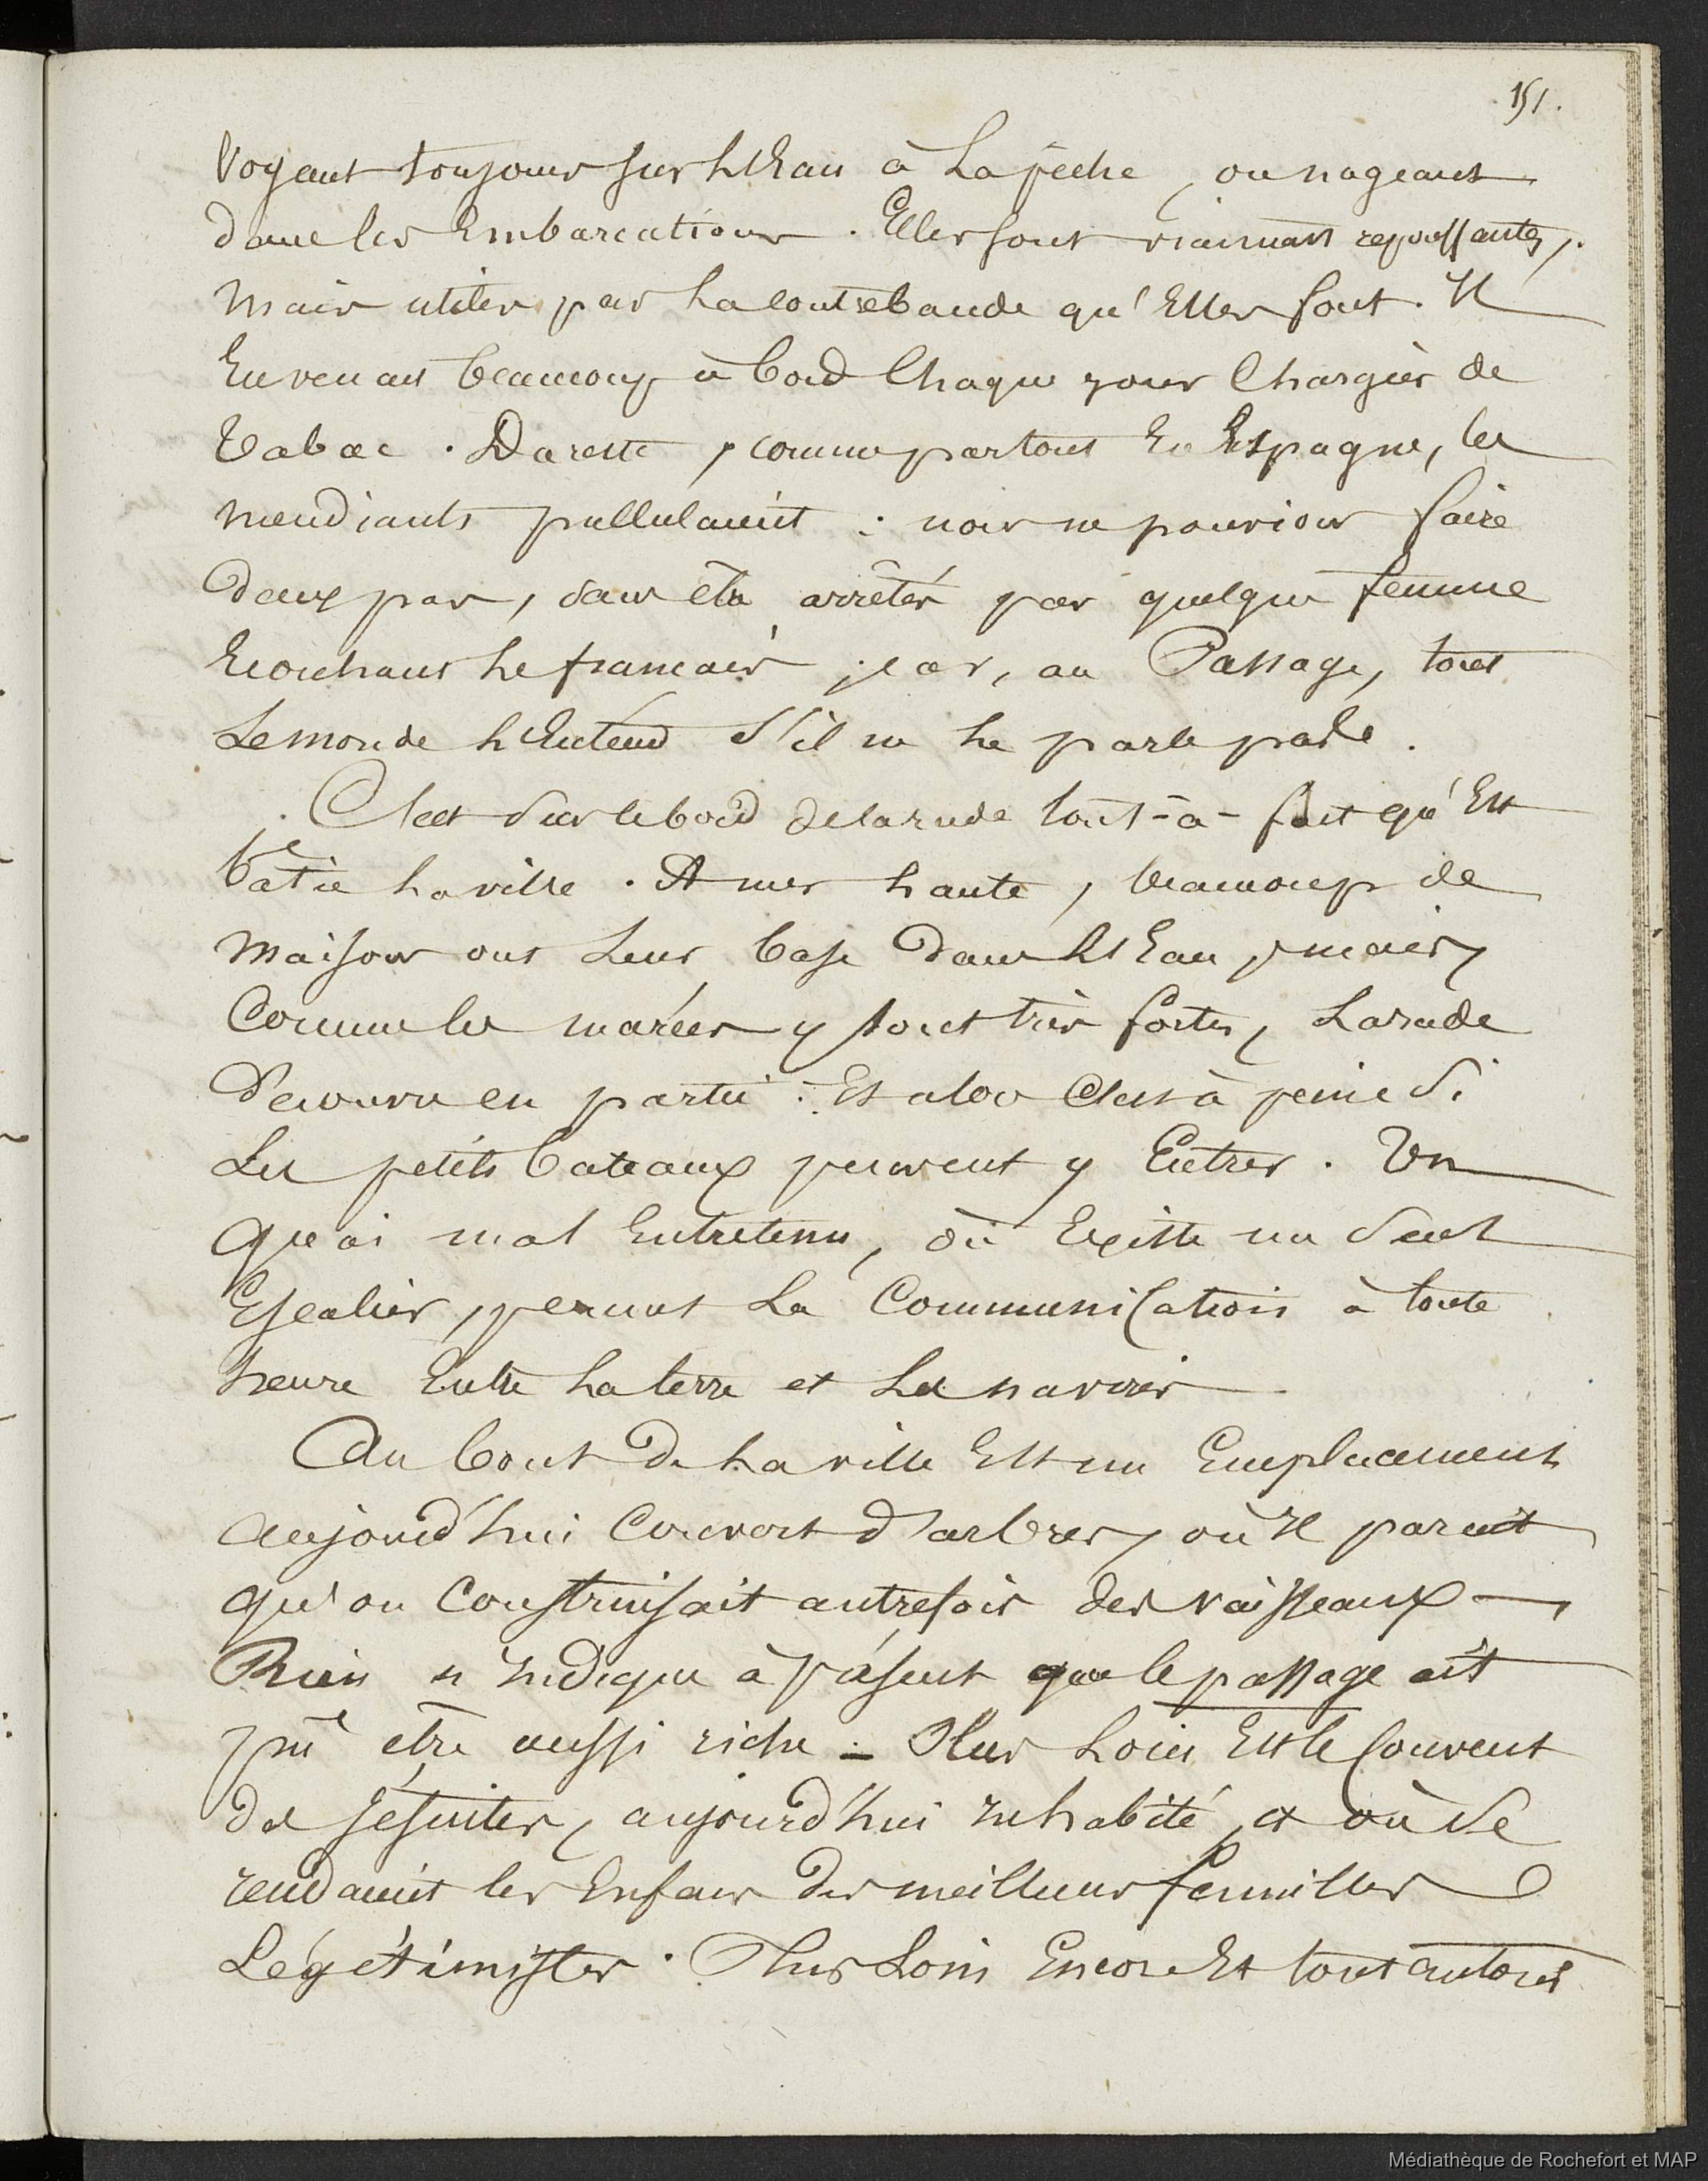 151.
voyant toujours sur l'Eau à la pêche, ou nageant
dans les Embarcations. Elles sont vraiment repoussantes,
mais utiles par la contrebande qu'Elles font. Il
En venait beaucoup à bord Chaque jour Chargées de
Tabac. Du reste, comme partout En Espagne, les
mendiants pullulaient : nous ne pouvions faire
deux pas, sans être arrêtés par quelque femme
Ecorchant le français ; car, au Passage, tout
Le monde l'Entend s'il ne le parle pas.
C'est sur le bord de la rade tout-à-fait qu'Est
bâtie la ville. A mer haute, beaucoup de
maisons ont leur base dans l'Eau ; mais,
Comme les marées y sont très fortes, La rade
Découvre en partie : Et alors C'est à peine si
Les petits bateaux peuvent y Entrer. Un
quai mal Entretenu, où Existe un seul
Escalier, permet La Communication à toute
heure Entre la terre et Les navires
Au bout de la ville Est un Emplacement
aujourd'hui Couvert d'arbres, où Il parait
qu'on Construisait autrefois des vaisseaux —
Rien n'Indique à présent que le passage ait
pu être aussi riche — Plus Loin Est le Couvent
des Jésuites, aujourd'hui Inhabité, et où se
rendaient les Enfans des meilleures familles
Légitimistes. Plus Loin Encore Et tout autour
Médiathèque de Rochefort et MAP